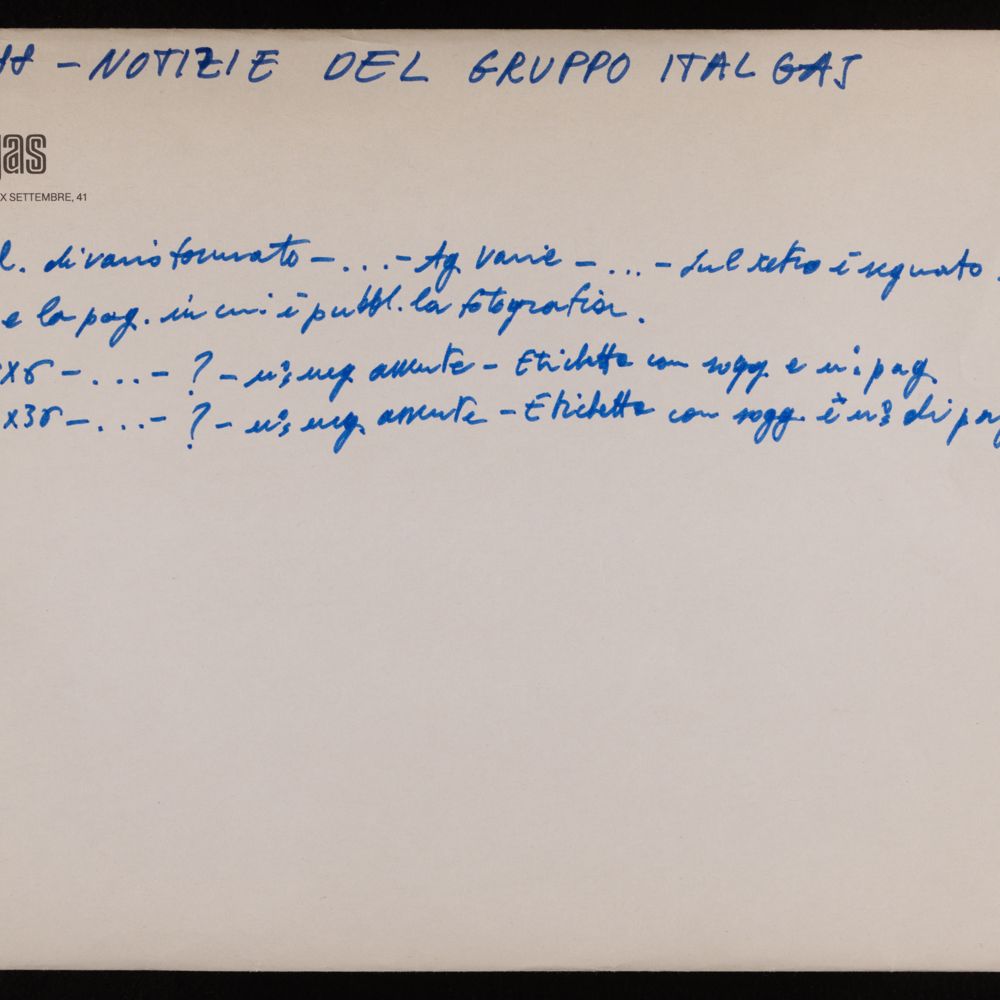 - NOTIZIE DEL GRUPPO ITALGAS
gas
X SETTEMBRE, 41
l. di vario formato - ... - Ag. Varie - ... - Sul retro è segnato
e la pag. in cui è pubbl. la fotografia.
x6 - ... - ? - n° neg. assente - Etichetta con sogg. e n° pag.
x36 - ... - ? - n° neg. assente - Etichetta con sogg. e n° di pag